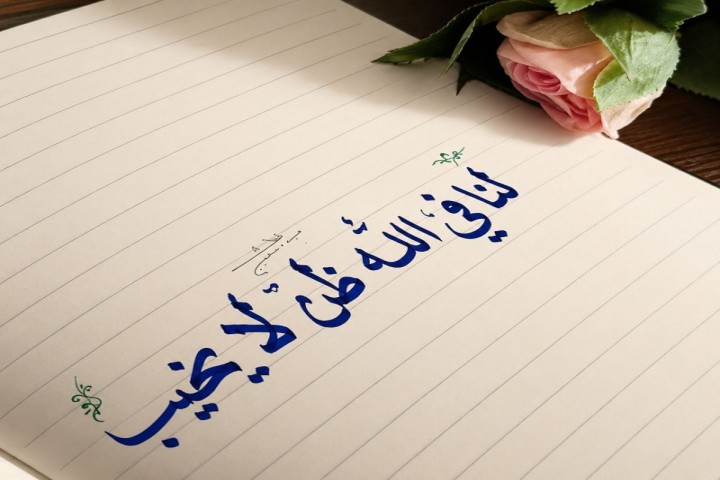 لنا في الله ظن لا يخيب